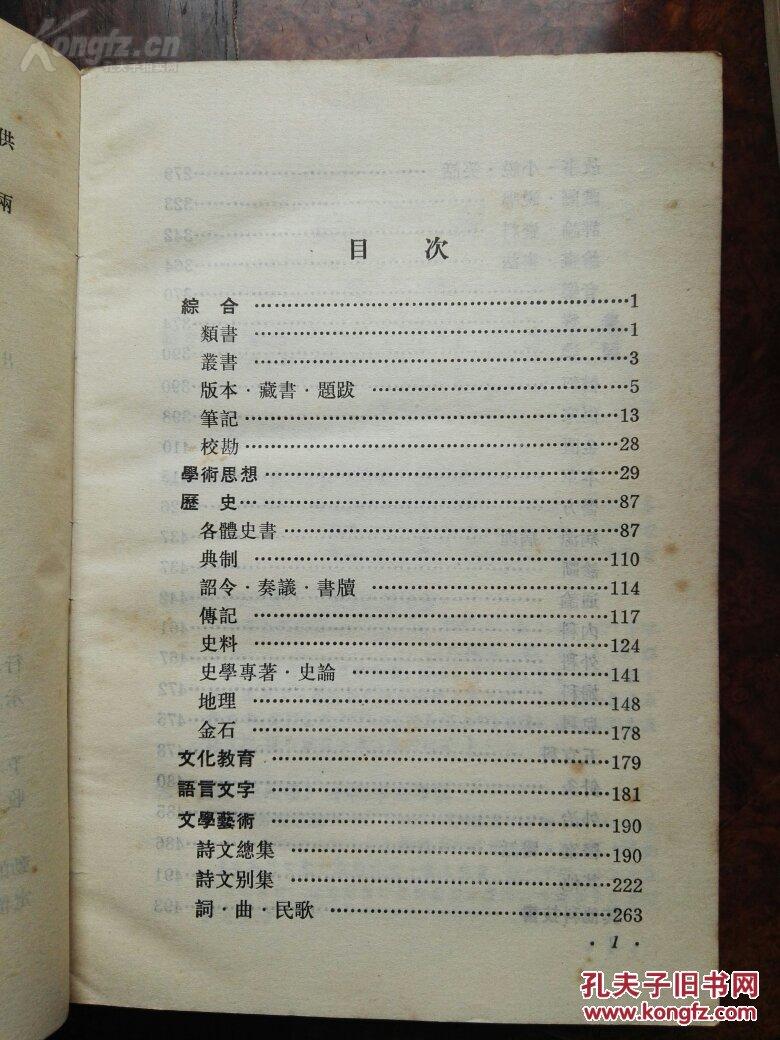 Kongfz.cn
孔夫子旧书网
供
兩
目 次
綜 合 ……1
類書 ……1
叢書 ……3
版本·藏書·題跋 ……5
筆記 ……13
校勘 ……28
學術思想 ……29
歷 史 ……87
各體史書 ……87
典制 ……110
詔令·奏議·書牘 ……114
傳記 ……117
史料 ……124
史學專著·史論 ……141
地理 ……148
金石 ……178
文化教育 ……179
語言文字 ……181
文學藝術 ……190
詩文總集 ……190
詩文别集 ……222
詞·曲·民歌 ……263
· 1 ·
孔夫子旧书网
www.kongfz.com